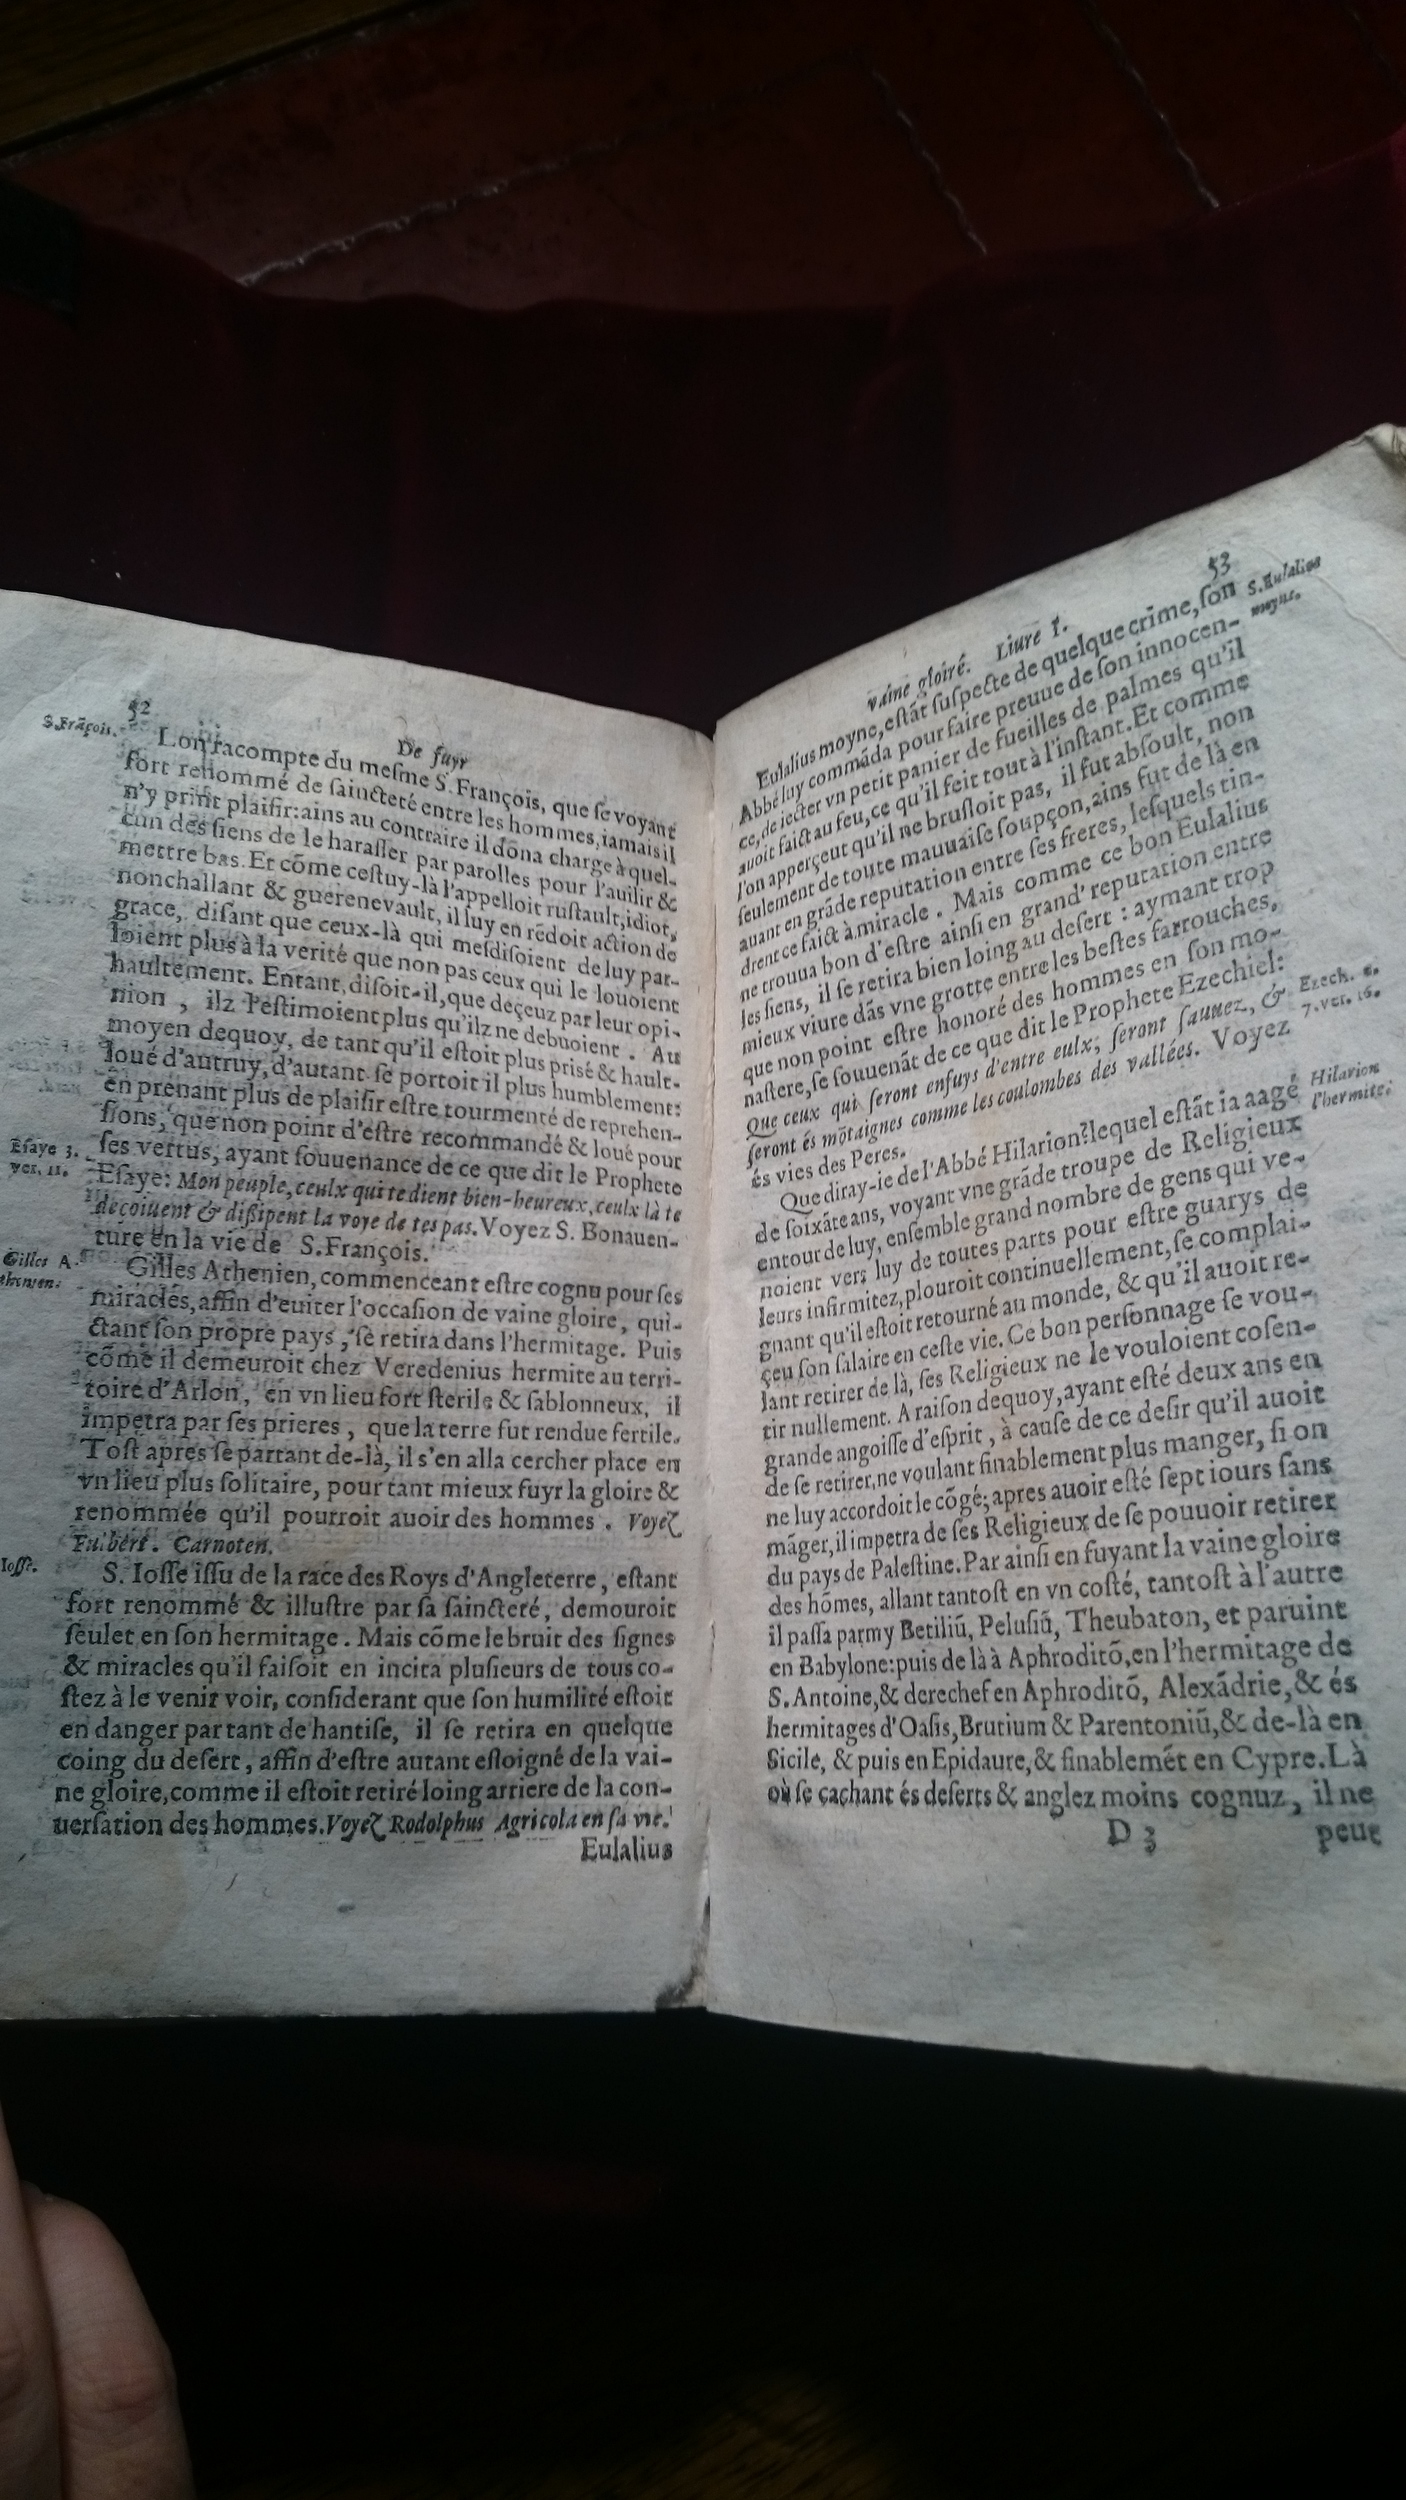 52
De fuyr
S. Frãçois.
Lon racompte du meſme S. François, que ſe voyant
fort renommé de ſaincteté entre les hommes, iamais il
n'y print plaiſir: ains au contraire il dona charge à quel-
cun des ſiens de le haraſſer par parolles pour l'auilir &
mettre bas. Et cõme ceſtuy-là l'appelloit ruſtault, idiot,
nonchallant & guerenevault, il luy en rẽdoit action de
grace, diſant que ceux-là qui meſdiſoient de luy par-
loient plus à la verité que non pas ceux qui le louoient
haultement. Entant, diſoit-il, que deçeuz par leur opi-
nion, ilz l'eſtimoient plus qu'ilz ne debuoient. Au
moyen dequoy, de tant qu'il eſtoit plus priſé & hault-
loué d'autruy, d'autant ſe portoit il plus humblement:
en prenant plus de plaiſir eſtre tourmenté de reprehen-
ſions, que non point d'eſtre recommandé & loué pour
ſes vertus, ayant ſouuenance de ce que dit le Prophete
Eſaye 3.
ver. 11.
Eſaye: Mon peuple, ceulx qui te dient bien-heureux, ceulx là te
deçoiuent & diſsipent la voye de tes pas. Voyez S. Bonauen-
ture en la vie de S. François.
Gilles A-
thenien.
Gilles Athenien, commenceant eſtre cognu pour ſes
miraclés, affin d'euiter l'occaſion de vaine gloire, qui-
ctant ſon propre pays, ſe retira dans l'hermitage. Puis
cõme il demeuroit chez Veredenius hermite au terri-
toire d'Arlon, en vn lieu fort ſterile & ſablonneux, il
impetra par ſes prieres, que la terre fut rendue fertile.
Toſt apres ſe partant de-là, il s'en alla cercher place en
vn lieu plus ſolitaire, pour tant mieux fuyr la gloire &
renommée qu'il pourroit auoir des hommes. Voyeζ
Fulbert. Carnoten.
Ioſſe.
S. Ioſſe iſſu de la race des Roys d'Angleterre, eſtant
fort renommé & illuſtre par ſa ſaincteté, demouroit
ſeulet en ſon hermitage. Mais cõme le bruit des ſignes
& miracles qu'il faiſoit en incita pluſieurs de tous co-
ſtez à le venir voir, conſiderant que ſon humilité eſtoit
en danger par tant de hantiſe, il ſe retira en quelque
coing du deſert, affin d'eſtre autant eſloigné de la vai-
ne gloire, comme il eſtoit retiré loing arriere de la con-
uerſation des hommes. Voyeζ Rodolphus Agricola en ſa vie.
Eulalius
53
vaine gloiré. Liure 1.
S. Eulalius
moyne.
Eulalius moyne, eſtãt ſuſpecte de quelque crime, ſon
Abbé luy commãda pour faire preuue de ſon innocen-
ce, de iecter vn petit panier de fueilles de palmes qu'il
auoit faict au feu, ce qu'il feit tout à l'inſtant. Et comme
l'on apperçeut qu'il ne bruſloit pas, il fut abſoult, non
ſeulement de toute mauuaiſe ſoupçon, ains fut de là en
auant en grãde reputation entre ſes freres, leſquels tin-
drent ce faict à miracle. Mais comme ce bon Eulalius
ne trouua bon d'eſtre ainſi en grand' reputation entre
les ſiens, il ſe retira bien loing au deſert: aymant trop
mieux viure dãs vne grotte entre les beſtes farrouches,
que non point eſtre honoré des hommes en ſon mo-
naſtere, ſe ſouuenãt de ce que dit le Prophete Ezechiel:
Ezech. c.
7. ver. 16.
Que ceux qui ſeront enſuys d'entre eulx, ſeront ſauuez, &
ſeront és mõtaignes comme les coulombes des vallées. Voyez
és vies des Peres.
Hilarion
l'hermite.
Que diray-ie de l'Abbé Hilarion? lequel eſtãt ia aagé
de ſoixãte ans, voyant vne grãde troupe de Religieux
entour de luy, enſemble grand nombre de gens qui ve-
noient vers luy de toutes parts pour eſtre guarys de
leurs infirmitez, plouroit continuellement, ſe complai-
gnant qu'il eſtoit retourné au monde, & qu'il auoit re-
çeu ſon ſalaire en ceſte vie. Ce bon perſonnage ſe vou-
lant retirer de là, ſes Religieux ne le vouloient coſen-
tir nullement. A raiſon dequoy, ayant eſté deux ans en
grande angoiſſe d'eſprit, à cauſe de ce deſir qu'il auoit
de ſe retirer, ne voulant finablement plus manger, ſi on
ne luy accordoit le cõgé; apres auoir eſté ſept iours ſans
mãger, il impetra de ſes Religieux de ſe pouuoir retirer
du pays de Paleſtine. Par ainſi en fuyant la vaine gloire
des hõmes, allant tantoſt en vn coſté, tantoſt à l'autre
il paſſa parmy Betiliũ, Peluſiũ, Theubaton, et paruint
en Babylone: puis de là à Aphroditõ, en l'hermitage de
S. Antoine, & derechef en Aphroditõ, Alexãdrie, & és
hermitages d'Oaſis, Brutium & Parentoniũ, & de-là en
Sicile, & puis en Epidaure, & finablemẽt en Cypre. Là
où ſe cachant és deſerts & anglez moins cognuz, il ne
D 3
peut